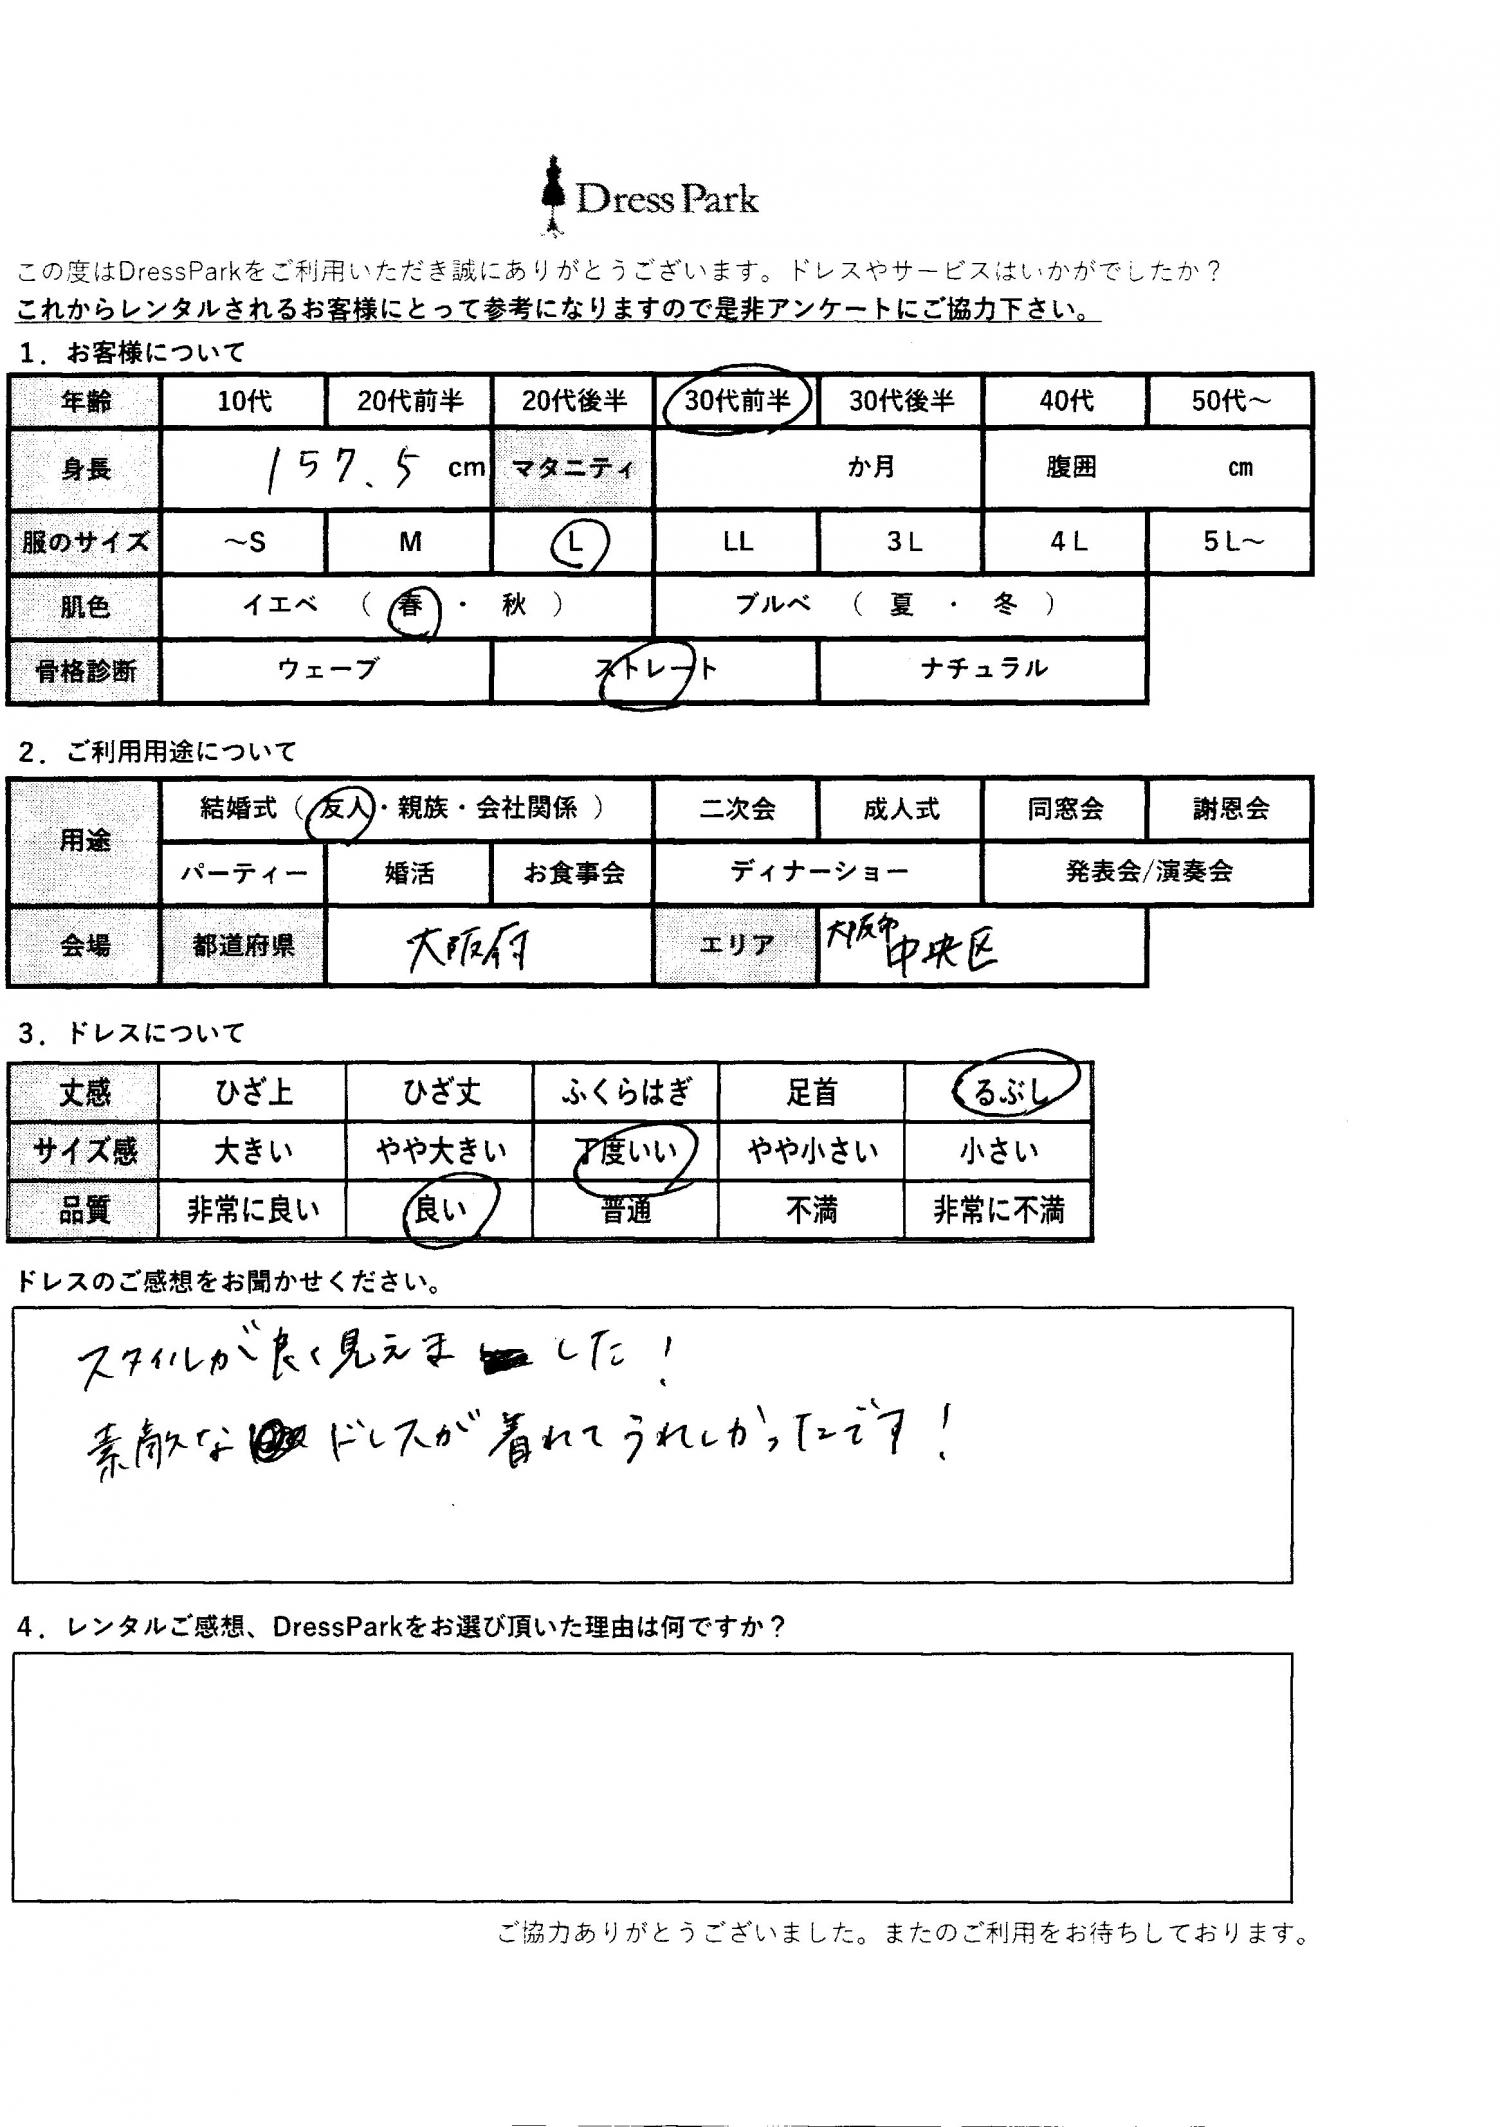 Dress Park
この度はDressParkをご利用いただき誠にありがとうございます。ドレスやサービスはいかがでしたか？
これからレンタルされるお客様にとって参考になりますので是非アンケートにご協力下さい。
1．お客様について
年齢 10代 20代前半 20代後半 30代前半 30代後半 40代 50代～
身長 157.5 cm マタニティ か月 腹囲 cm
服のサイズ ～S M L LL 3L 4L 5L～
肌色 イエベ （ 春 ・ 秋 ） ブルベ （ 夏 ・ 冬 ）
骨格診断 ウェーブ ストレート ナチュラル
2．ご利用用途について
用途 結婚式（ 友人・親族・会社関係 ） 二次会 成人式 同窓会 謝恩会
パーティー 婚活 お食事会 ディナーショー 発表会/演奏会
会場 都道府県 大阪府 エリア 大阪市 中央区
3．ドレスについて
丈感 ひざ上 ひざ丈 ふくらはぎ 足首 くるぶし
サイズ感 大きい やや大きい 丁度いい やや小さい 小さい
品質 非常に良い 良い 普通 不満 非常に不満
ドレスのご感想をお聞かせください。
スタイルが良く見えました！
素敵なドレスが着れてうれしかったです！
4．レンタルご感想、DressParkをお選び頂いた理由は何ですか？
ご協力ありがとうございました。またのご利用をお待ちしております。